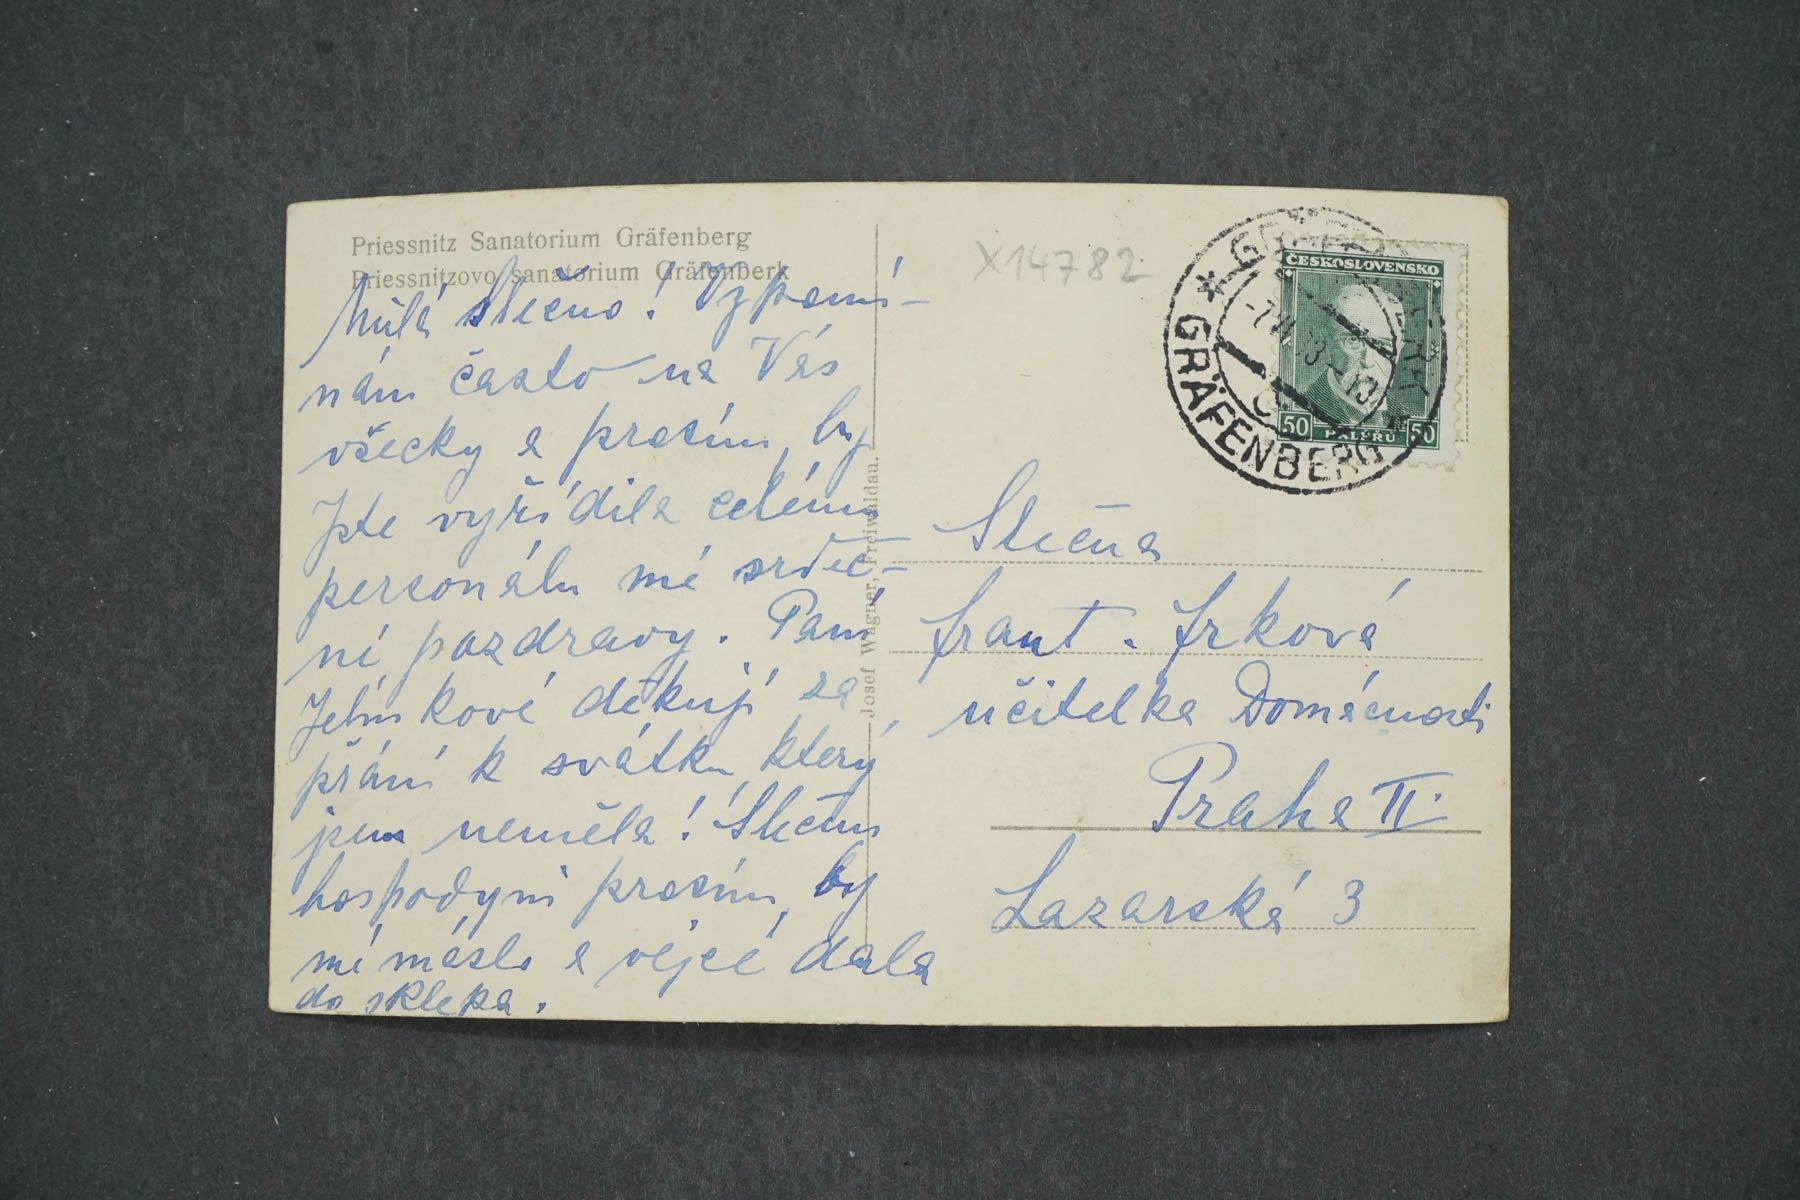 Priessnitz Sanatorium Gräfenberg
Priessnitzovo sanatorium Gräfenberk
Milá slečno! Vzpomí-
nám často na Vás
všecky a prosím, by
jste vyřídila celému
personálu mé srdeč-
ní pozdravy. Paní
Jelínkové děkuji za
přání k svátku, který
jsem neměla! Slečnu
hospodyni prosím, by
mé máslo a vejce dala
do sklepa.
Josef Wagner, Freiwaldau.
X14782
GRÄFENBERK
GRÄFENBERG
ČESKOSLOVENSKO
50 HALÉŘŮ 50
Slečna
Frant. Frková
učitelka Domácnosti
Praha II.
Lazarská 3